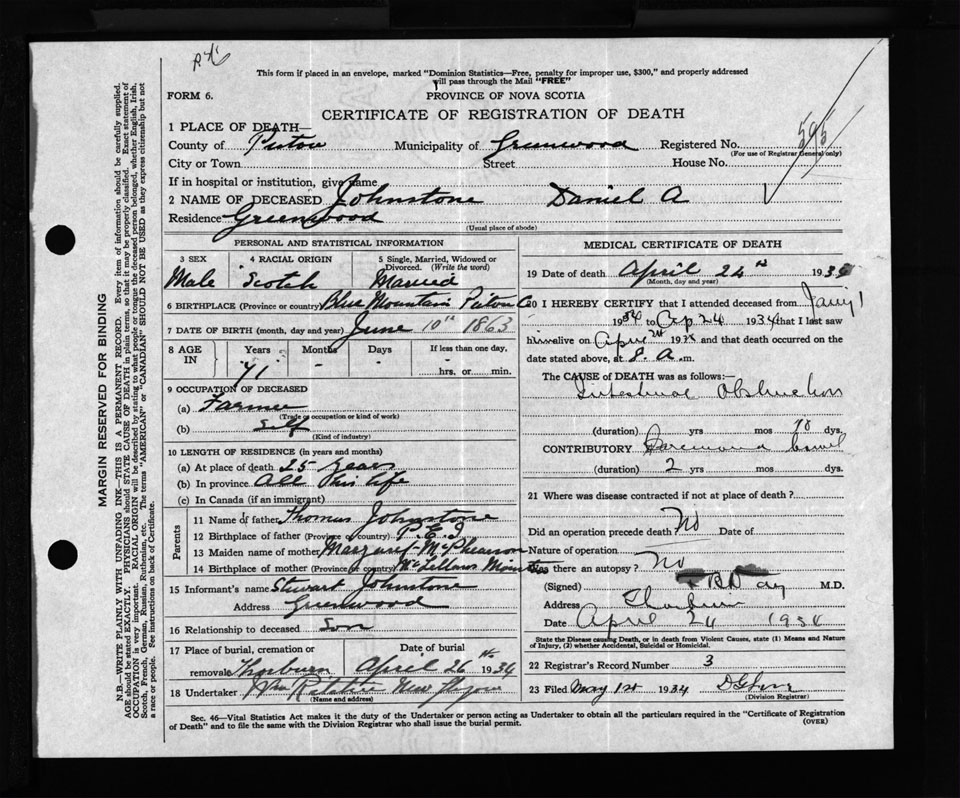 This form if placed in an envelope, marked "Dominion Statistics—Free, penalty for improper use, $300," and properly addressed
will pass through the Mail "FREE"
FORM 6.
PROVINCE OF NOVA SCOTIA
CERTIFICATE OF REGISTRATION OF DEATH
1 PLACE OF DEATH—
County of Pictou Municipality of Greenwood Registered No. 595
(For use of Registrar General only)
City or Town Street House No.
If in hospital or institution, give name
2 NAME OF DECEASED Johnstone Daniel A
Residence Greenwood
(Usual place of abode)
PERSONAL AND STATISTICAL INFORMATION
3 SEX 4 RACIAL ORIGIN 5 Single, Married, Widowed or Divorced. (Write the word)
Male Scotch Married
6 BIRTHPLACE (Province or country) Blue Mountain Pictou Co
7 DATE OF BIRTH (month, day and year) June 10th 1863
8 AGE IN Years Months Days If less than one day,
71 - hrs. or min.
9 OCCUPATION OF DECEASED
(a) Farmer
(Trade or occupation or kind of work)
(b) Self
(Kind of industry)
10 LENGTH OF RESIDENCE (in years and months)
(a) At place of death 25 years
(b) In province All His life
(c) In Canada (if an immigrant)
Parents
11 Name of father Thomas Johnstone
12 Birthplace of father (Province or country) P.E.I
13 Maiden name of mother Margaret McPhearson
14 Birthplace of mother (Province or country) McLellans Mountain
15 Informant's name Stewart Johnstone
Address Greenwood
16 Relationship to deceased Son
17 Place of burial, cremation or removal Date of burial
Thorburn April 26 1934
18 Undertaker New Glasgow
(Name and address)
MEDICAL CERTIFICATE OF DEATH
19 Date of death April 24th 1934
(Month, day and year)
20 I HEREBY CERTIFY that I attended deceased from
1934 to Ap 24 1934 that I last saw
him alive on April 24 193 and that death occurred on the
date stated above, at 8. A.m.
The CAUSE OF DEATH was as follows:—
Intestinal Obstruction
(duration) yrs mos 10 dys.
CONTRIBUTORY
(duration) 2 yrs mos dys.
21 Where was disease contracted if not at place of death?
Did an operation precede death No Date of
Nature of operation
Was there an autopsy? No
(Signed) M.D.
Address Thorburn
Date April 24 1934
State the Disease causing Death, or in death from Violent Causes, state (1) Means and Nature
of Injury, (2) whether Accidental, Suicidal or Homicidal.
22 Registrar's Record Number 3
23 Filed May 1st 1934
(Division Registrar)
Sec. 46—Vital Statistics Act makes it the duty of the Undertaker or person acting as Undertaker to obtain all the particulars required in the "Certificate of Registration
of Death" and to file the same with the Division Registrar who shall issue the burial permit.
(OVER)
MARGIN RESERVED FOR BINDING
N.B.—WRITE PLAINLY WITH UNFADING INK—THIS IS A PERMANENT RECORD. Every item of information should be carefully supplied.
AGE should be stated EXACTLY. PHYSICIANS should STATE CAUSE OF DEATH in plain terms, so that it may be properly classified. Exact statement of
OCCUPATION is very important. RACIAL ORIGIN will be described by stating to what people or tongue the deceased person belonged, whether English, Irish,
Scotch, French, German, Russian, Ruthenian, etc. The terms "AMERICAN" or "CANADIAN" SHOULD NOT BE USED as they express citizenship but not
a race or people. See instructions on back of Certificate.